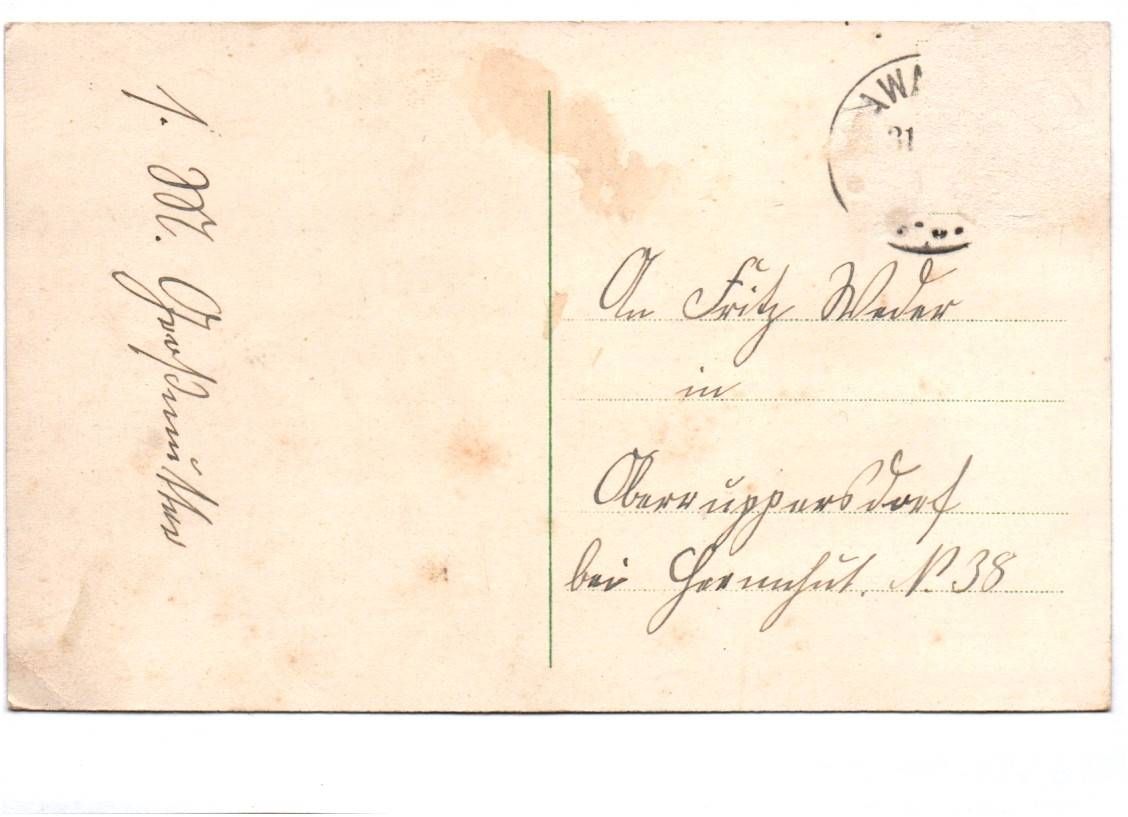 Großmutter
31
An Fritz Weder
in
Oberruppersdorf
bei Herrnhut. N. 38